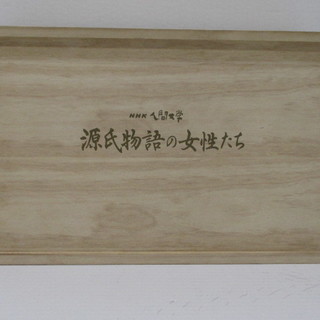 NHK 人間大学
源氏物語の女性たち